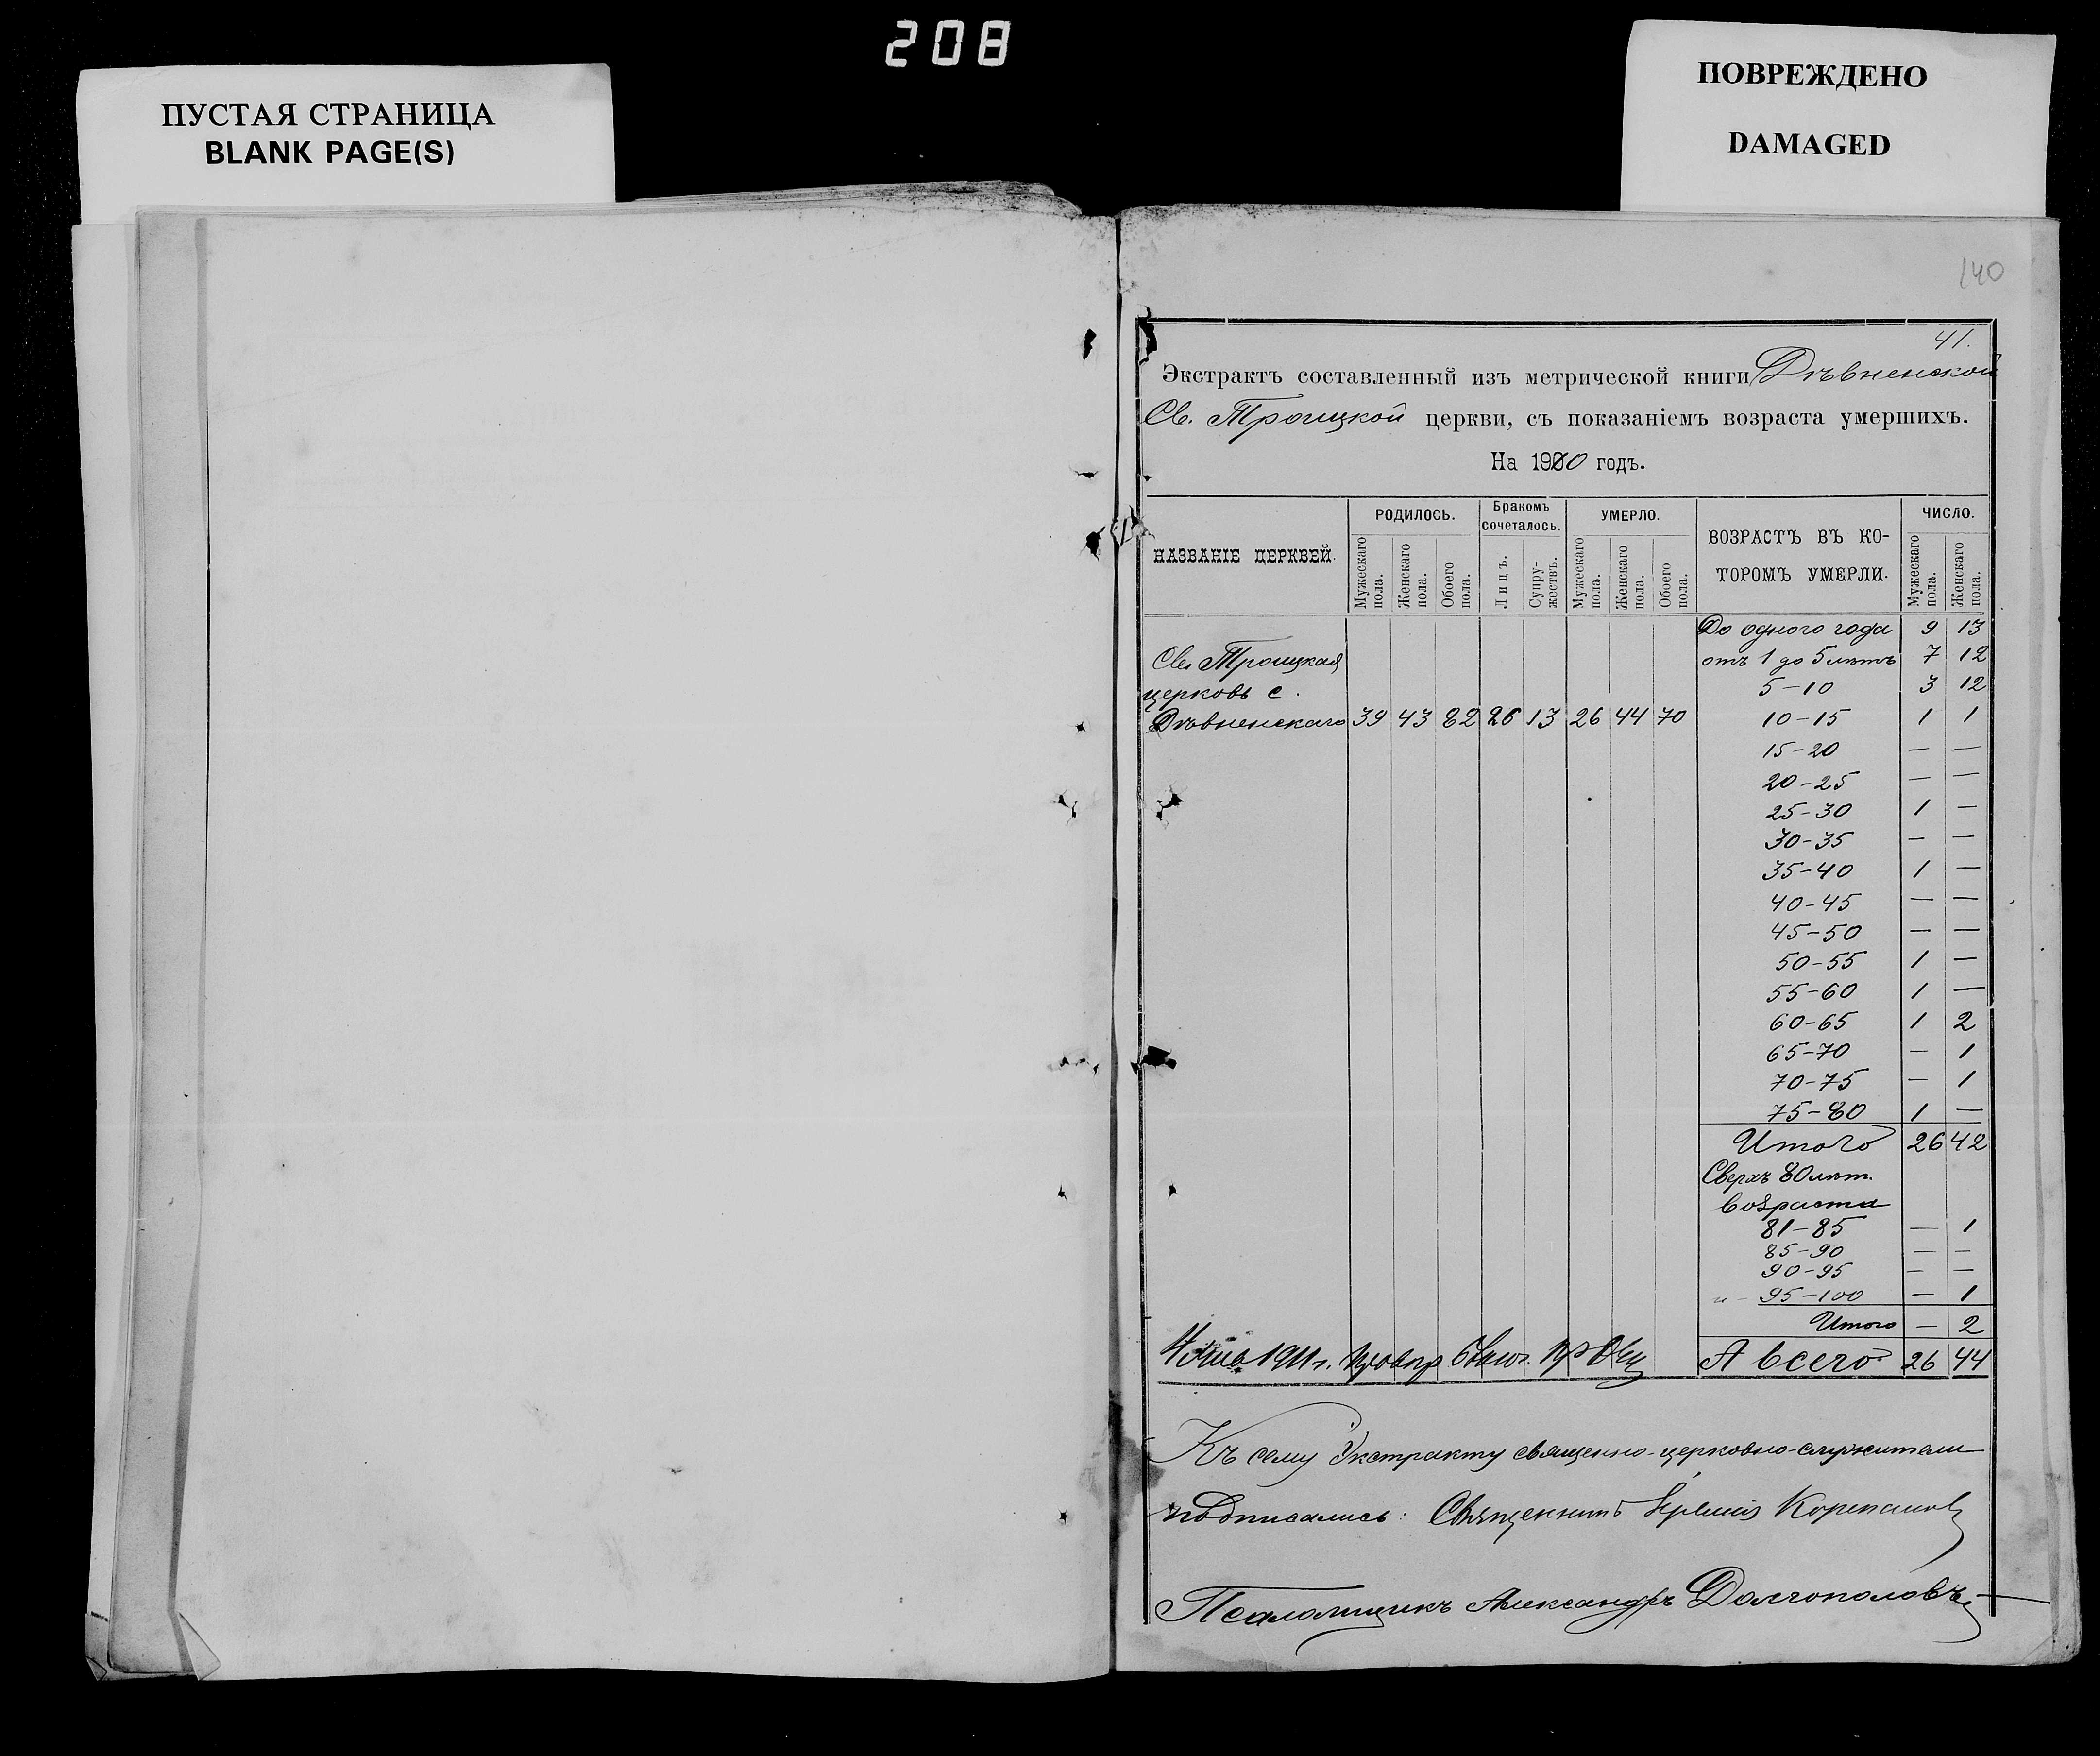 208
ПУСТАЯ СТРАНИЦА
BLANK PAGE(S)
ПОВРЕЖДЕНО
DAMAGED
140
41.
Экстрактъ составленный изъ метрической книги Дѣвненской
Св. Троицкой церкви, съ показаніемъ возраста умершихъ.
На 1900 годъ.
НАЗВАНІЕ ЦЕРКВЕЙ. РОДИЛОСЬ. Бракомъ сочеталось. УМЕРЛО. ВОЗРАСТЪ ВЪ КО-ТОРОМЪ УМЕРЛИ. ЧИСЛО.
Мужескаго пола. Женскаго пола. Обоего пола. Лицъ. Супру-жествъ. Мужескаго пола. Женскаго пола. Обоего пола. Мужескаго пола. Женскаго пола.
До одного года 9 13
Св. Троицкая отъ 1 до 5 лѣтъ 7 12
церковь с. 5-10 3 12
Дѣвненскаго 39 43 82 26 13 26 44 70 10-15 1 1
15-20 — —
20-25 — —
25-30 1 —
30-35 — —
35-40 1 —
40-45 — —
45-50 — —
50-55 1 —
55-60 1 —
60-65 1 2
65-70 — 1
70-75 — 1
75-80 1 —
Итого 26 42
Сверхъ 80 лѣт.
возраста
81-85 — 1
85-90 — —
90-95 — —
95-100 — 1
Итого — 2
1911 г. А всего 26 44
Къ сему Экстракту священно-церковно-служители
подписались: Священникъ
Псаломщикъ Александръ Долгополовъ